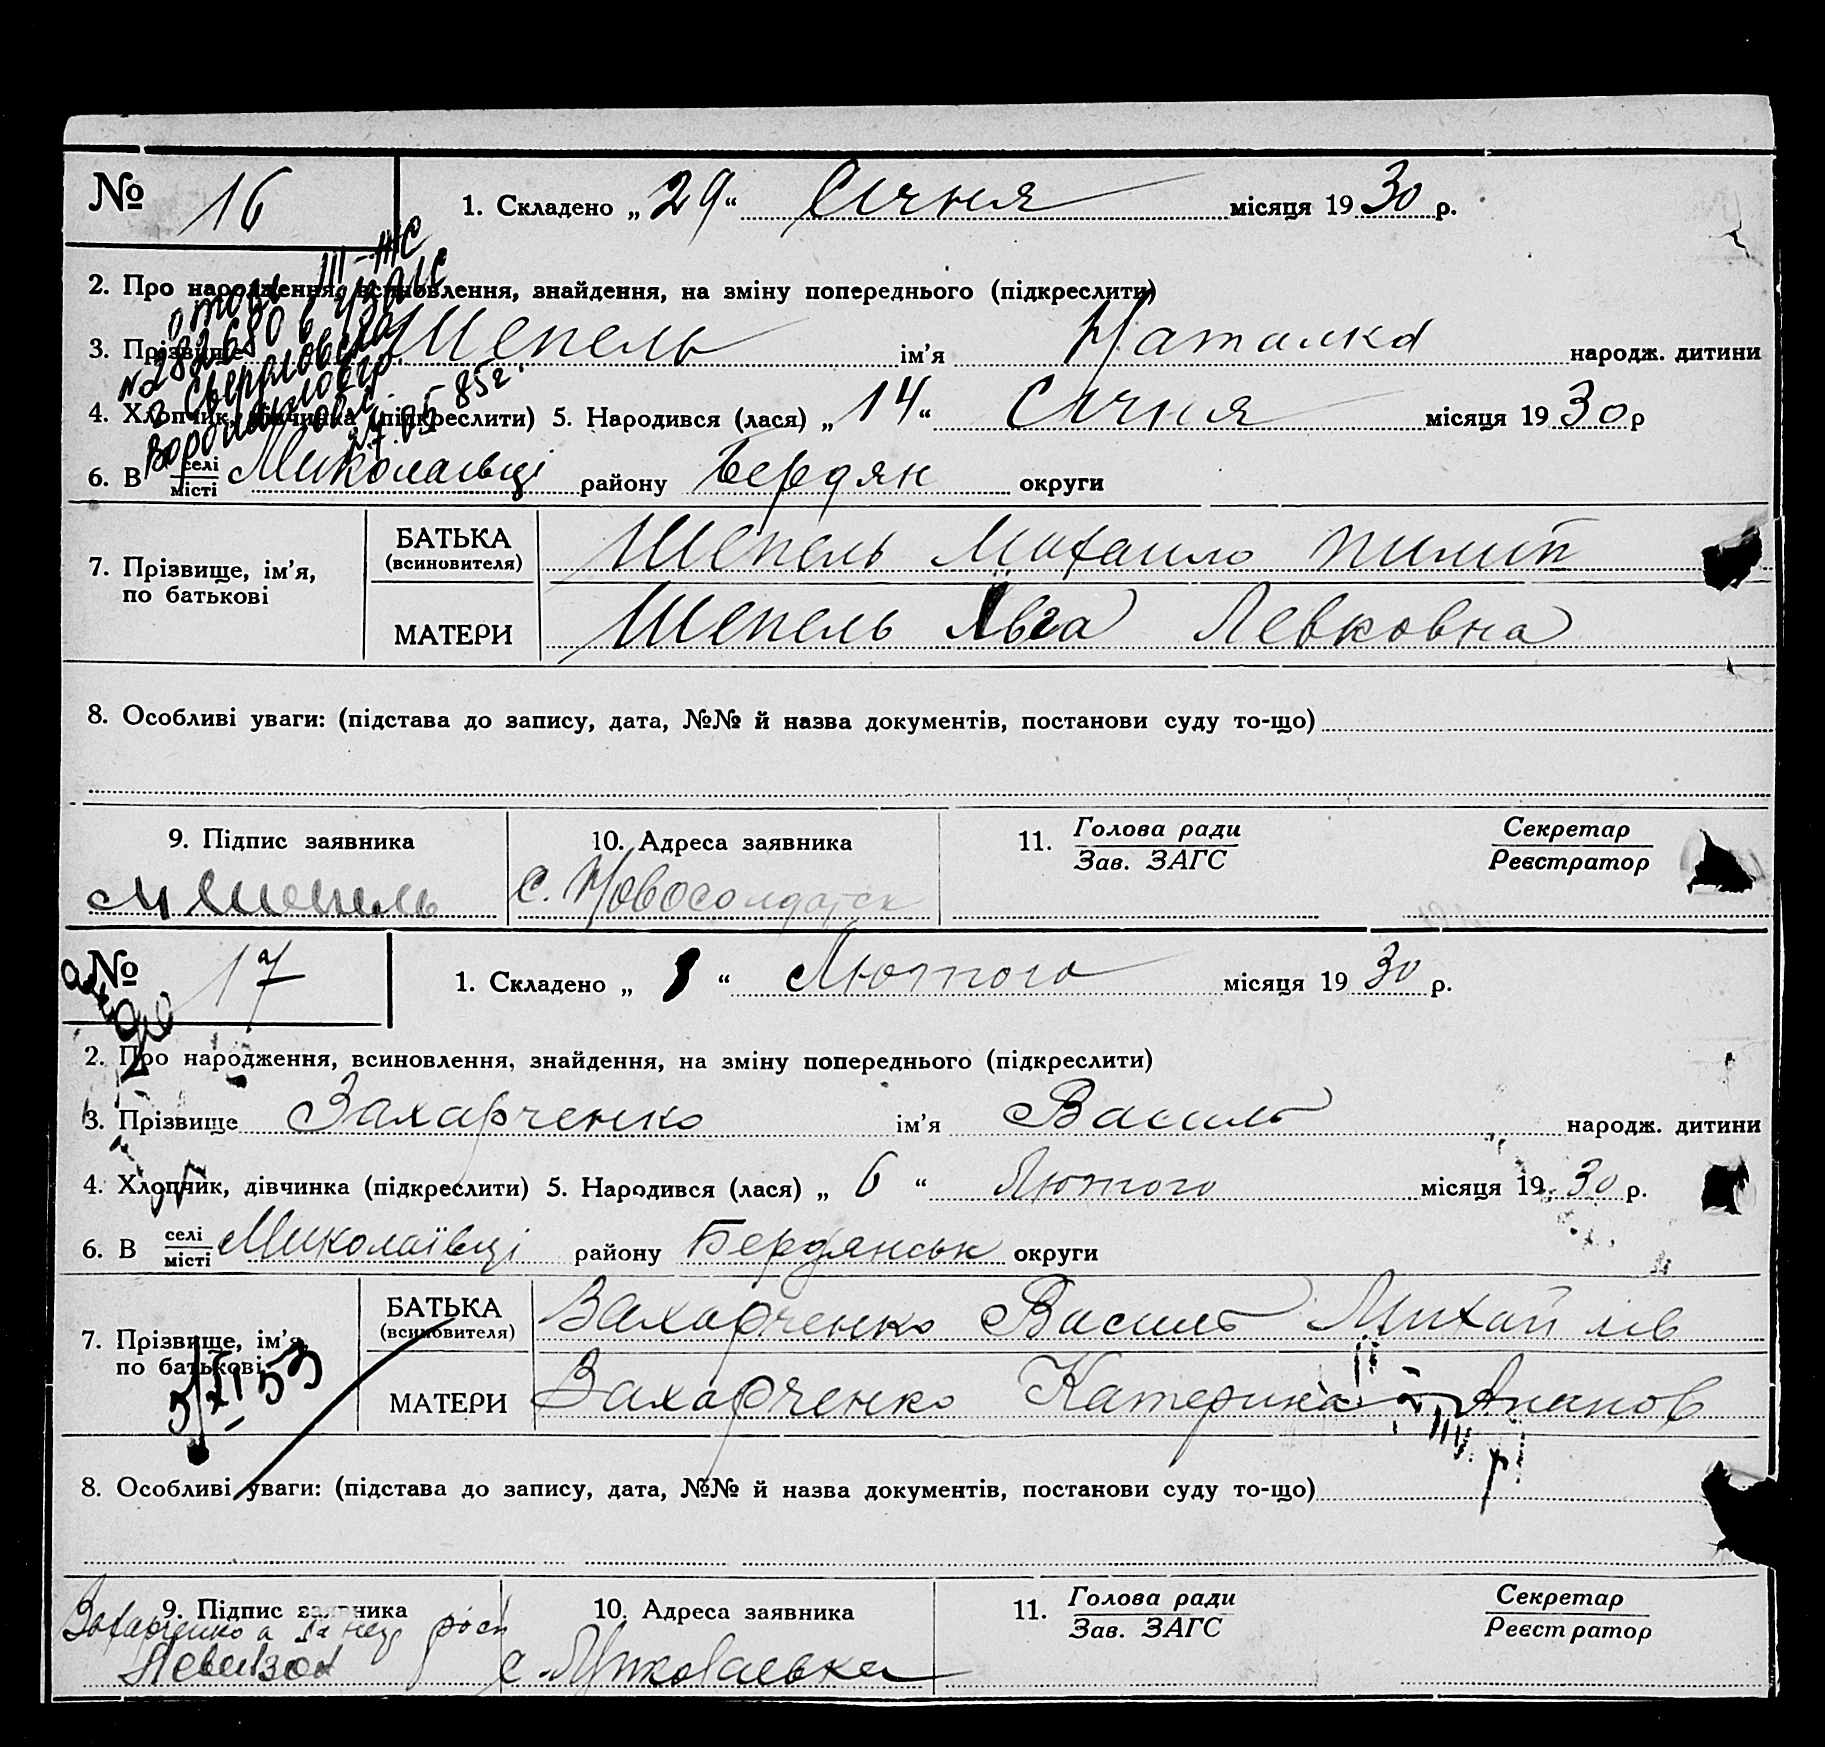 № 16
1. Складено „ 29 “ Січня місяця 19 30 р.
2. Про народження, всиновлення, знайдення, на зміну попереднього (підкреслити)
3. Прізвище Шепель ім’я Наталка народж. дитини
4. Хлопчик, дівчинка (підкреслити) 5. Народився (лася) „ 14 “ Січня місяця 19 30 р
6. В селі місті Миколаівці району Бердян округи
7. Прізвище, ім’я, по батькові
БАТЬКА (всиновителя) Шепель Михаило Пилип
МАТЕРИ Шепель Левковна
8. Особливі уваги: (підстава до запису, дата, №№ й назва документів, постанови суду то-що)
9. Підпис заявника
10. Адреса заявника
11. Голова ради
Зав. ЗАГС
Секретар
Реєстратор
М Шепель
с. Новосолдатск
III – ЖС
№ 282680
Свердловска
Ворошиловгр
85г.
№ 17
1. Складено „ “ Лютого місяця 19 30 р.
2. Про народження, всиновлення, знайдення, на зміну попереднього (підкреслити)
3. Прізвище Захарченко ім’я Василь народж. дитини
4. Хлопчик, дівчинка (підкреслити) 5. Народився (лася) „ 6 “ Лютого місяця 19 30 р.
6. В селі місті Миколаївці району Бердянськ округи
7. Прізвище, ім’я, по батькові
БАТЬКА (всиновителя) Захарченко Василь Михайлів
МАТЕРИ Захарченко Катерина Ананов
5/XI 53
8. Особливі уваги: (підстава до запису, дата, №№ й назва документів, постанови суду то-що)
9. Підпис заявника
10. Адреса заявника
11. Голова ради
Зав. ЗАГС
Секретар
Реєстратор
Захарченко а за неу
с. Миколаевка